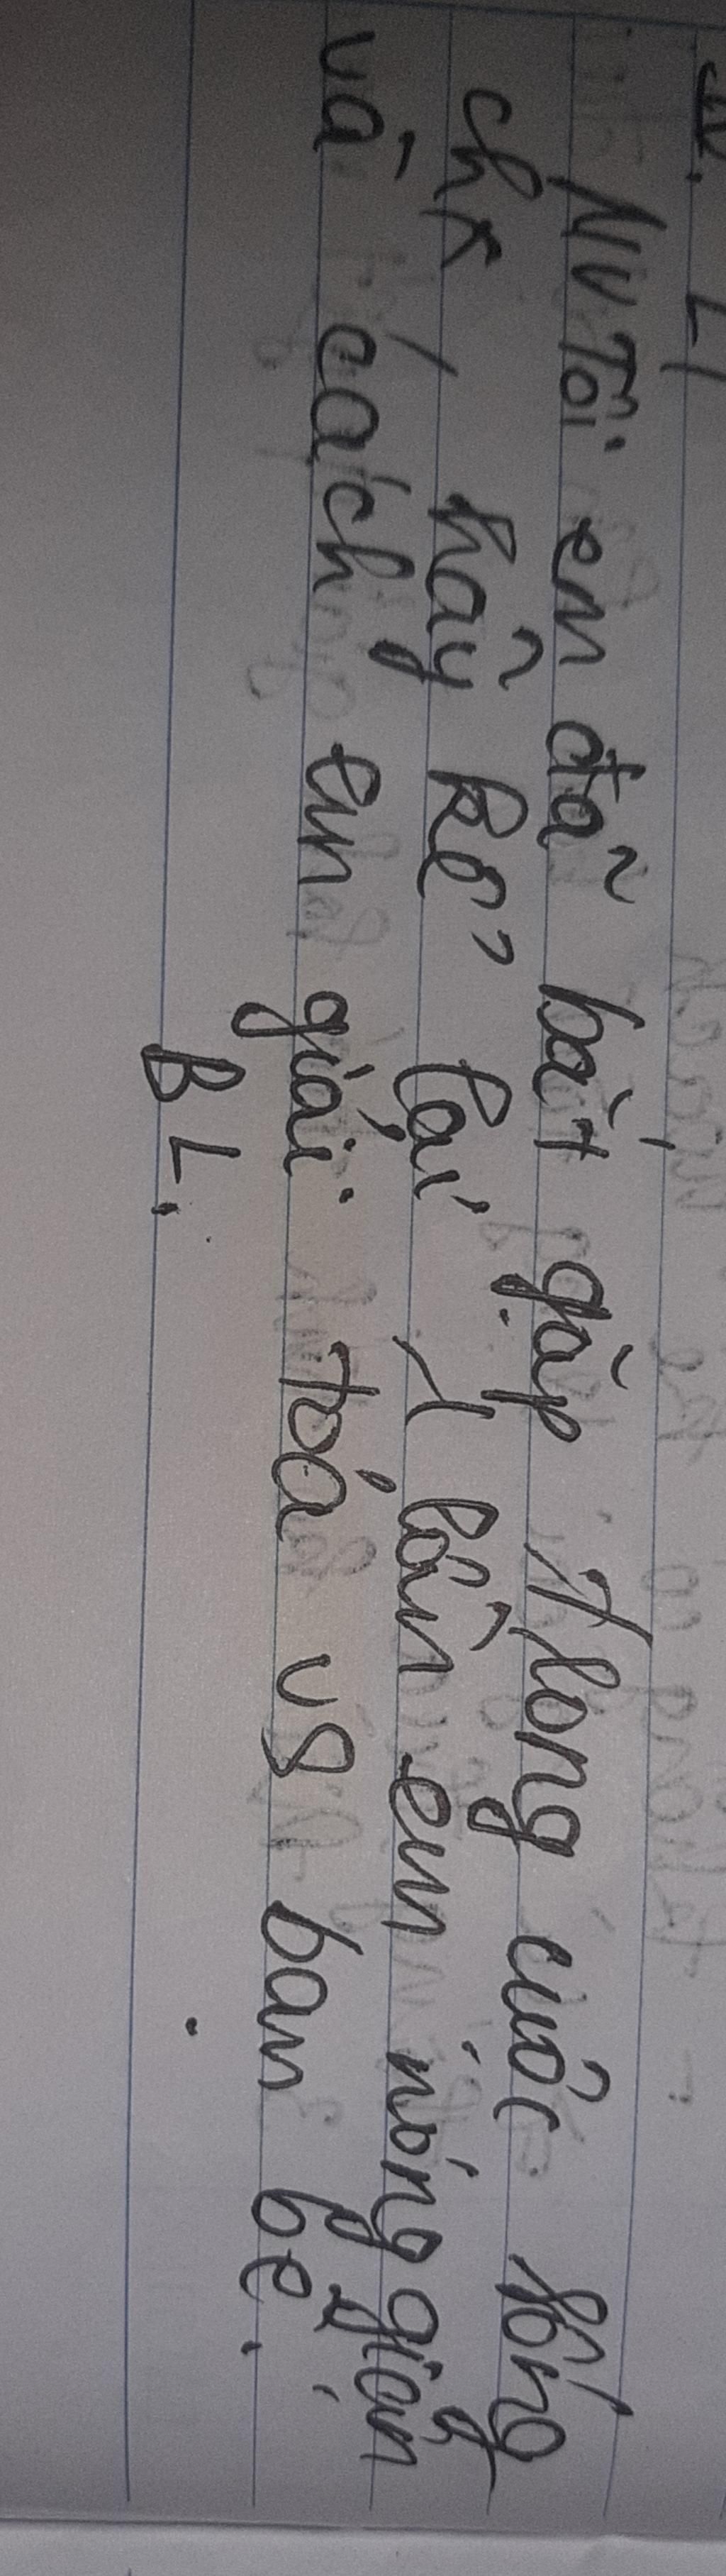 NV Tôi em đã bắt gặp trong cuộc sống
chx hãy kể lại 1 lần em nóng giận
và cách em giải toả vs bạn bè.
BL.